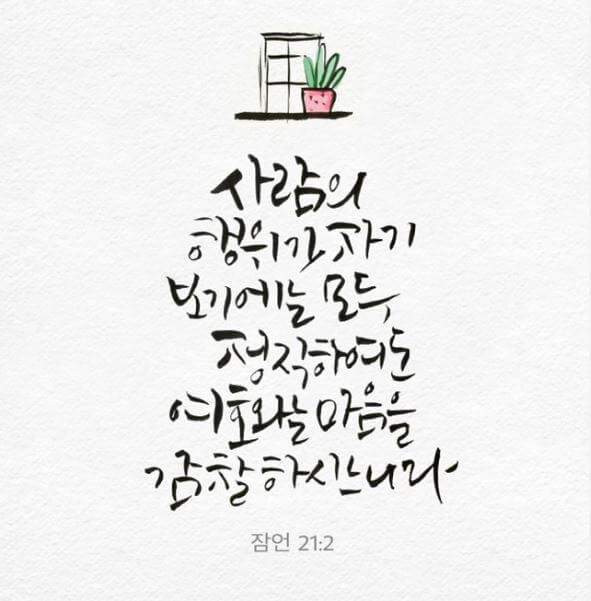 사람의
행위가 자기
보기에는 모두
정직하여도
여호와는 마음을
감찰하시느니라
잠언 21:2